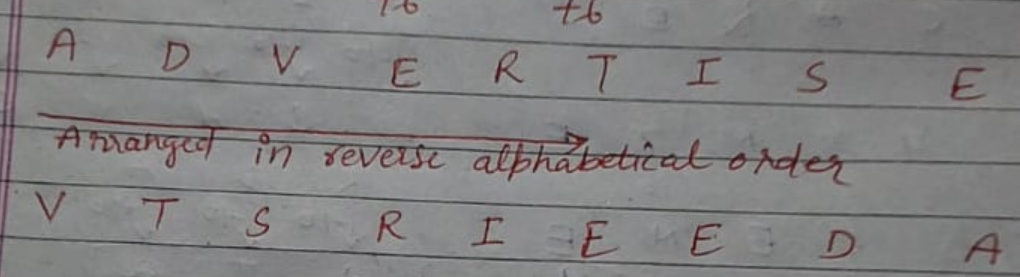 +6 +6
A D V E R T I S E
Arranged in reverse alphabetical order
V T S R I E E D A